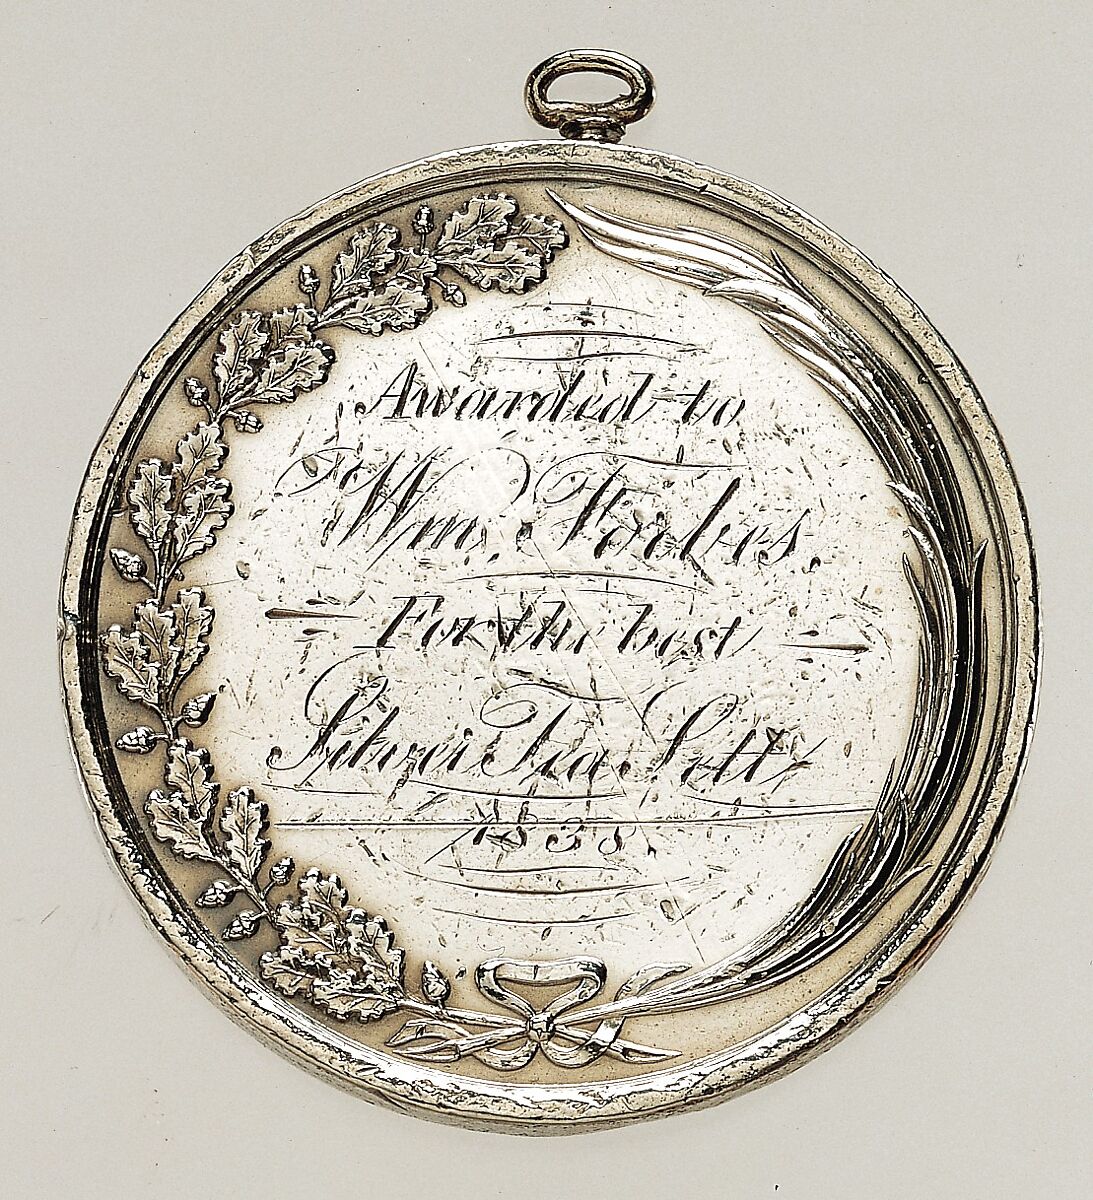 Awarded to
Wm. Forbes.
For the best
Silver Tea Sett
1838.